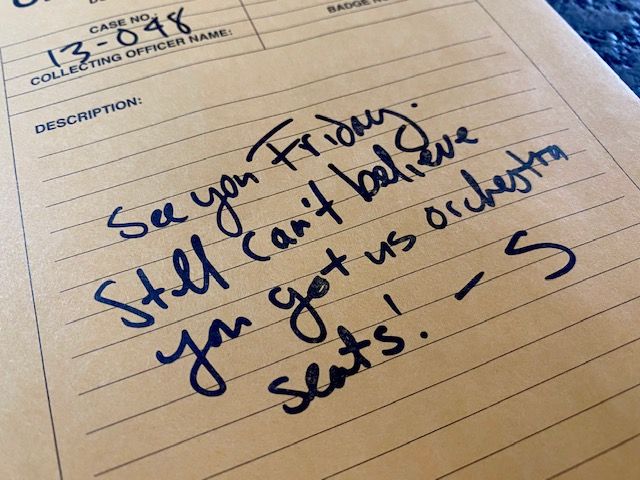 CASE NO.
BADGE NO
13-048
COLLECTING OFFICER NAME:
DESCRIPTION:
See you Friday.
Still can't believe
you got us orchestra
seats! – S